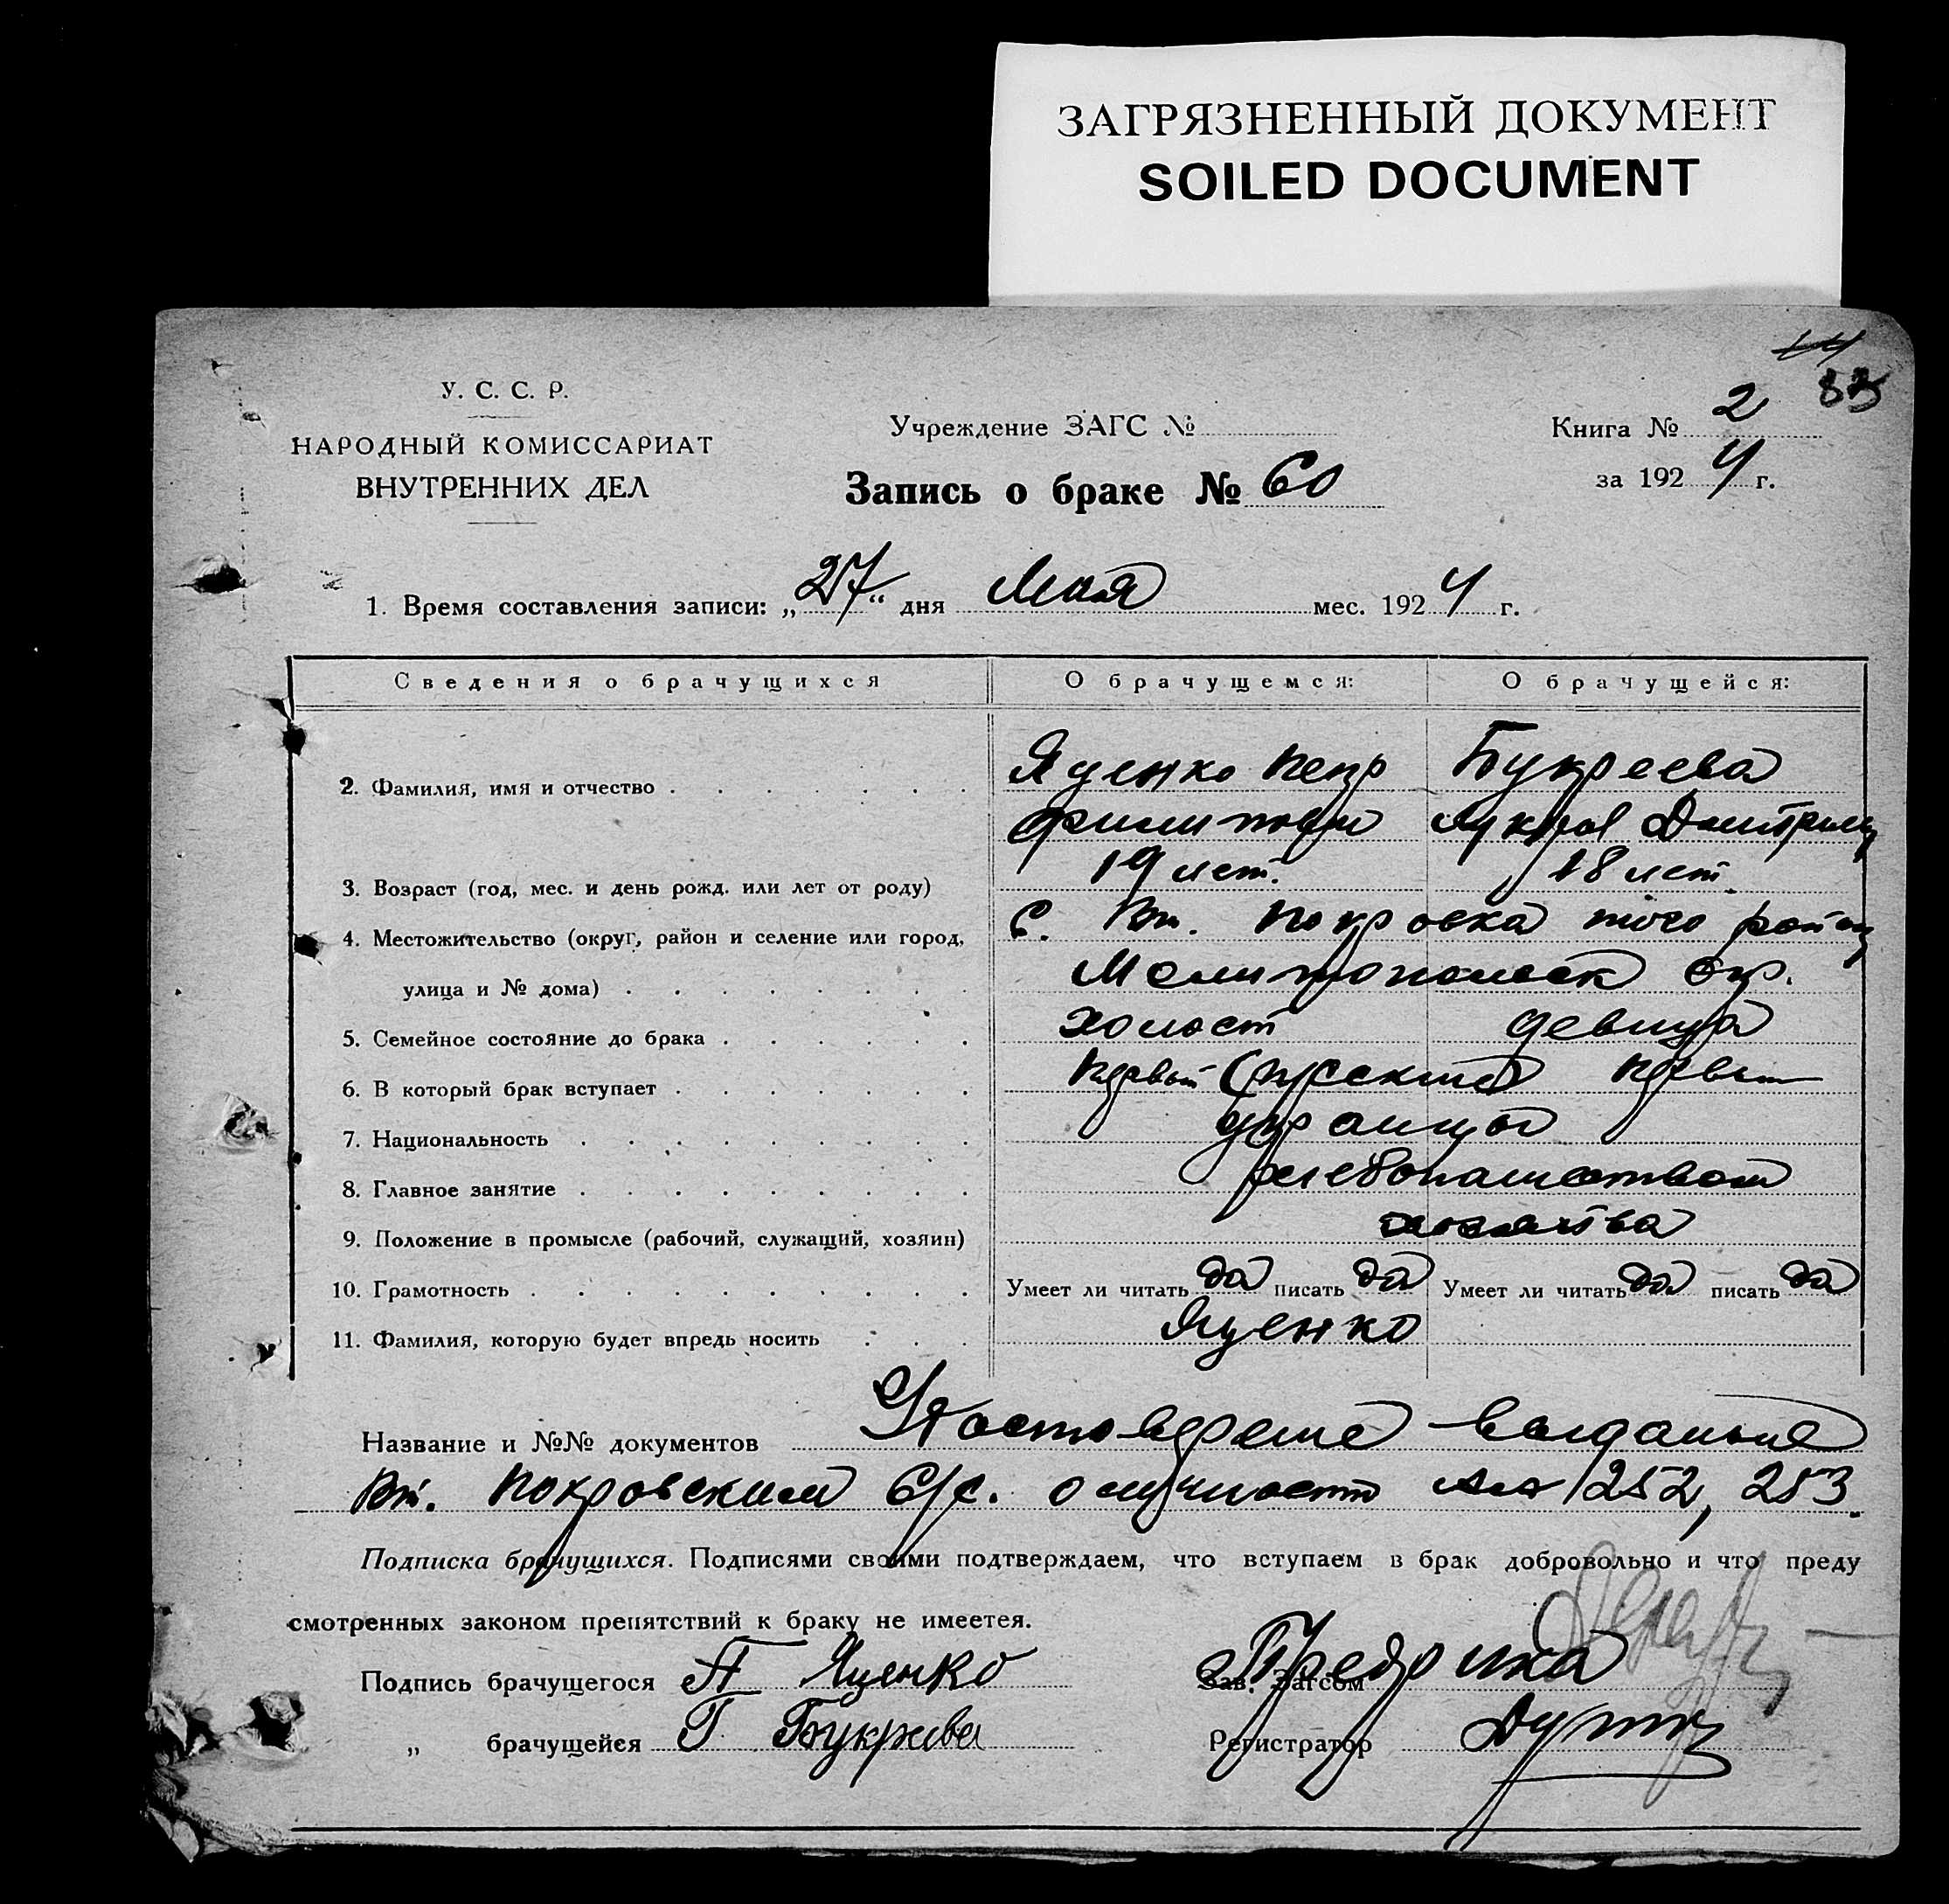 ЗАГРЯЗНЕННЫЙ ДОКУМЕНТ
SOILED DOCUMENT
14
33
У. С. С. Р.
НАРОДНЫЙ КОМИССАРИАТ
ВНУТРЕННИХ ДЕЛ
Учреждение ЗАГС №
Запись о браке № 60
Книга № 2
за 1924 г.
1. Время составления записи: „27“ дня Мая мес. 1924 г.
Сведения о брачущихся О брачущемся: О брачущейся:
2. Фамилия, имя и отчество Яценко Петр Букреева
Дмитриев
3. Возраст (год, мес. и день рожд. или лет от роду) 19 лет. 18 лет.
4. Местожительство (округ, район и селение или город, С. Вт. Покровка того района
улица и № дома) Мелитопольск окр.
5. Семейное состояние до брака холост девица
6. В который брак вступает первый первый
7. Национальность украинцы
8. Главное занятие хлебопашеством
9. Положение в промысле (рабочий, служащий, хозяин) хозяйства
10. Грамотность Умеет ли читать да писать да Умеет ли читать да писать да
11. Фамилия, которую будет впредь носить Яценко
Название и №№ документов выданные
Вт. Покровским С/с. о личности 252, 253
Подписка брачущихся. Подписями своими подтверждаем, что вступаем в брак добровольно и что преду
смотренных законом препятствий к браку не имеется.
Подпись брачущегося П Яценко Зав. Загсом
„ брачущейся Г Букреева Регистратор